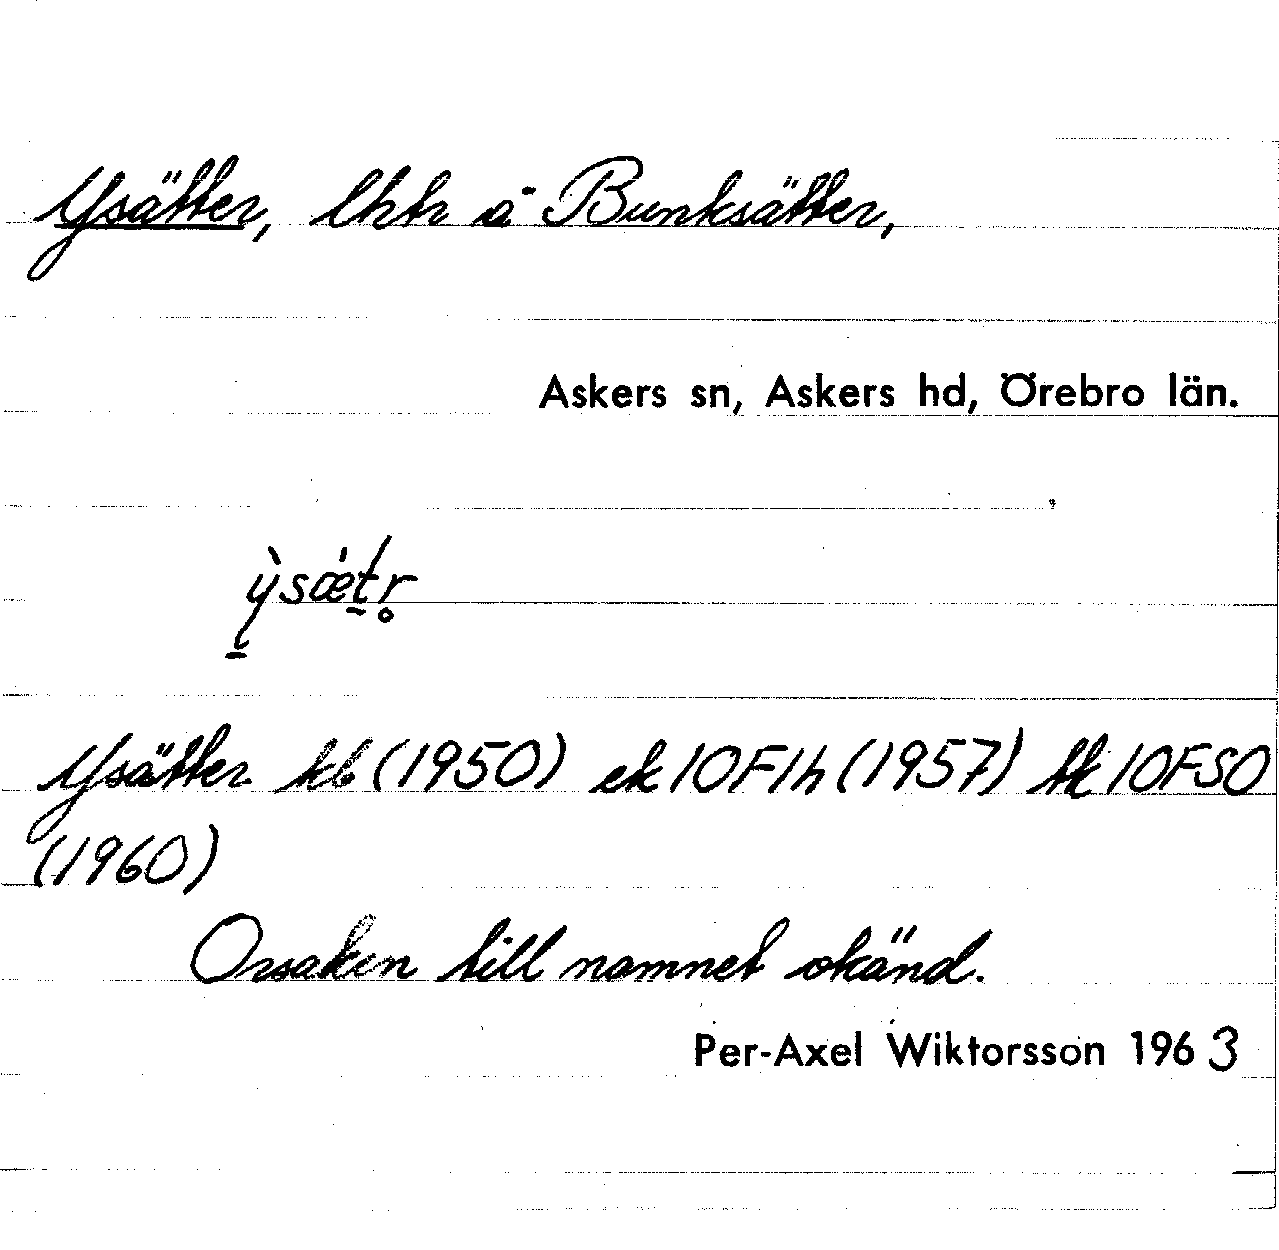 Ysätter, lht å Bunksätter,
Askers sn, Askers hd, Örebro län.
ỳsǽtr̥
Ysätter kb (1950) ek 10F1h (1957) tk 10FSO
(1960)
Orsaken till namnet okänd.
Per-Axel Wiktorsson 1963